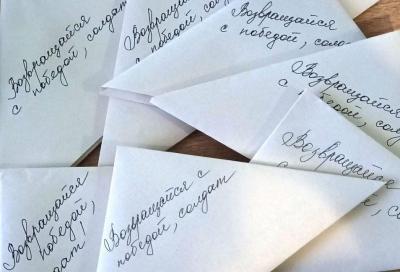 Возвращайся
с победой, солдат
Возвращайся
с победой, солдат
Возвращайся
с победой, солд
Возвращайся
с победой, солдат
Возвращайся
с победой, со
Возвращайся
с победой,
солдат!
Возвращайся с
победой, солдат